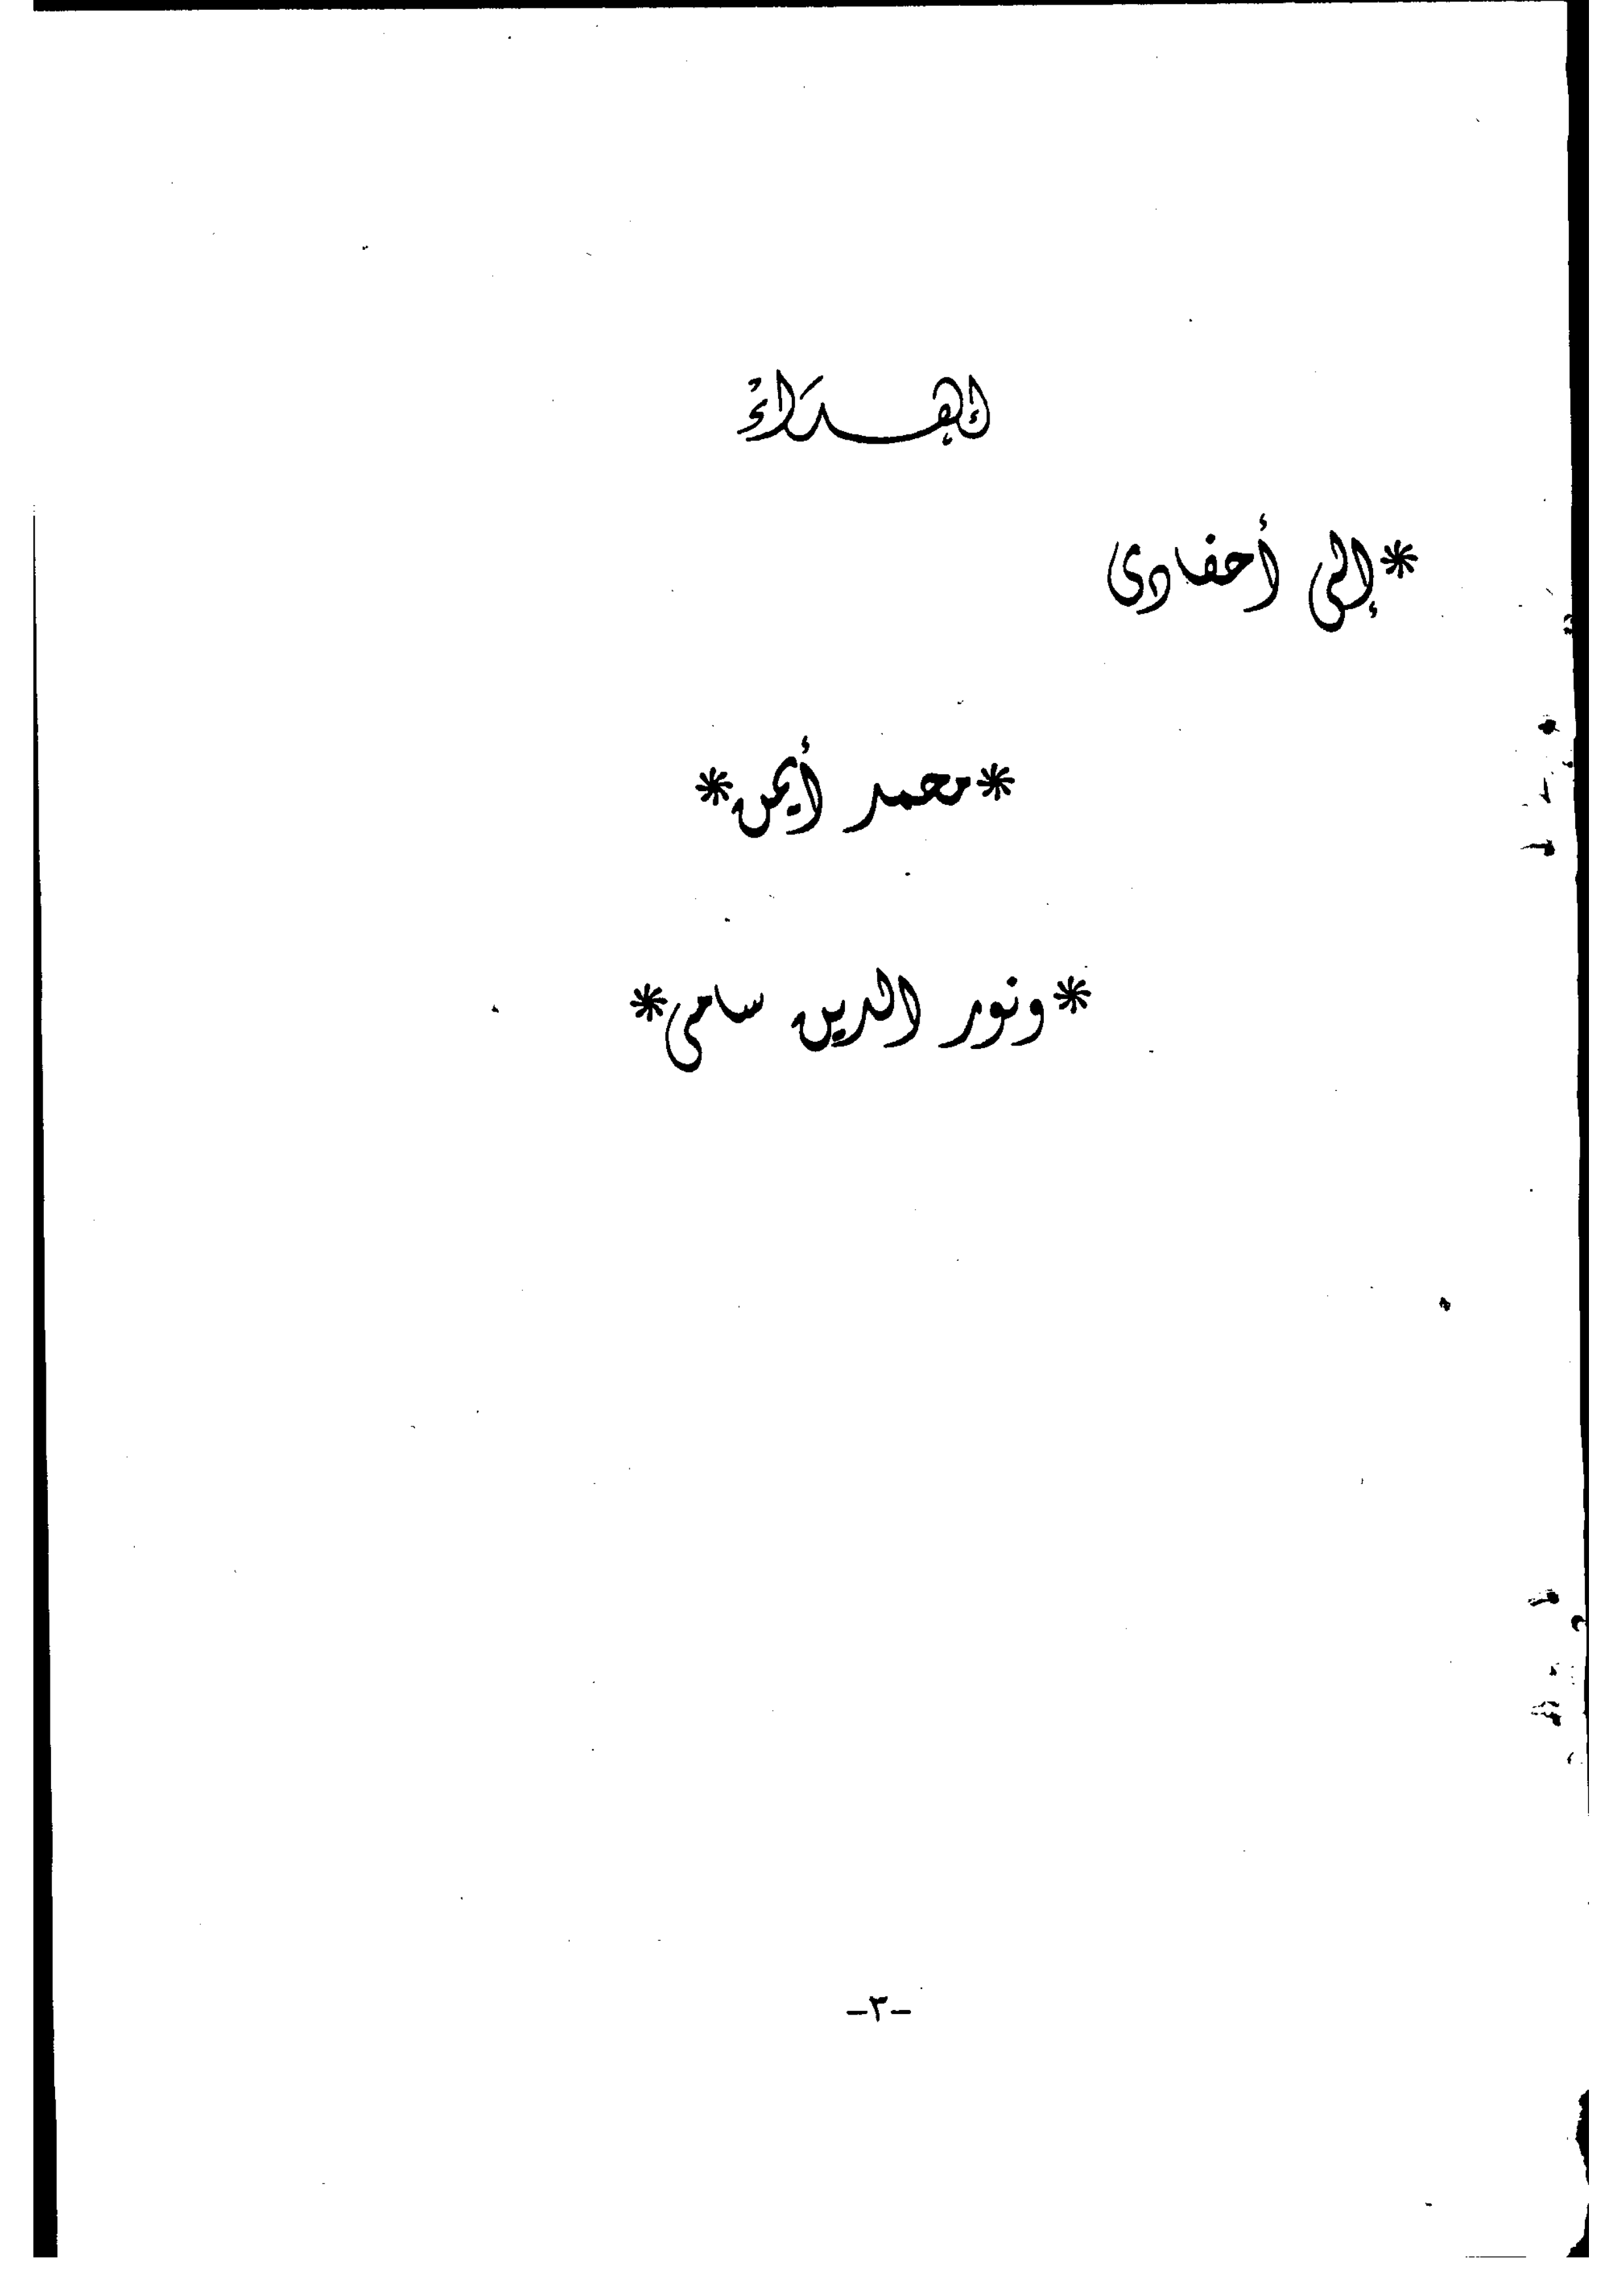 إهداءٌ
*إلى أحفادى
*محمد أيمن*
*ونور الدين سامى*
-٣-